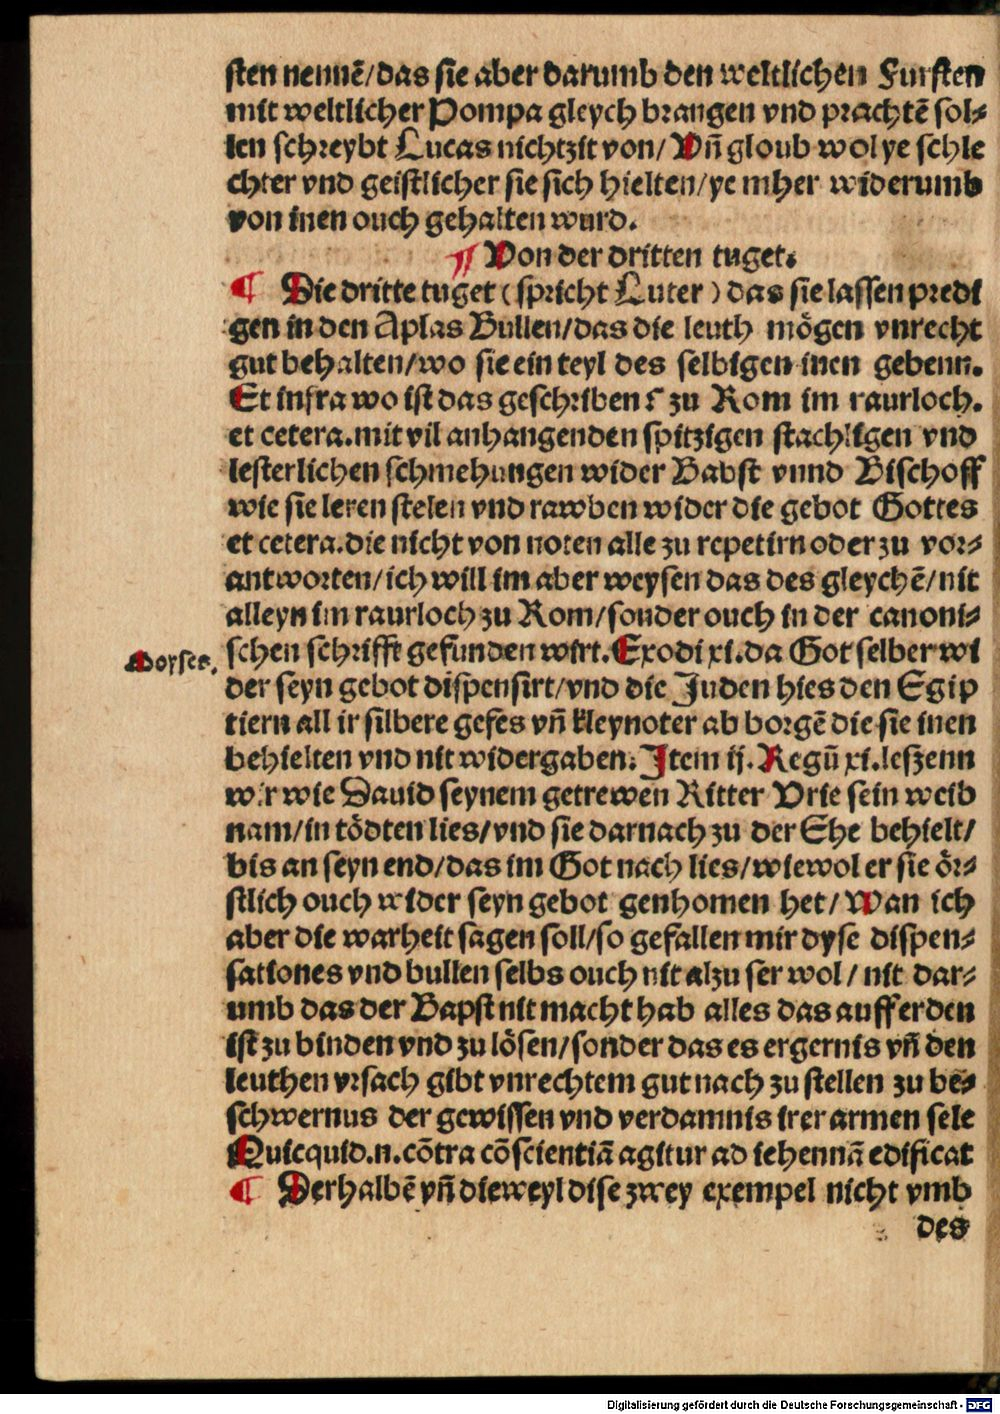 sten nennē/das sie aber darumb den weltlichen Fursten
mit weltlicher Pompa gleych brangen vnd prachtē sol-
len schreybt Lucas nichtzit von/ Vñ gloub wol ye schle
chter vnd geistlicher sie sich hielten/ye mher widerumb
von inen ouch gehalten wurd.
¶ Von der dritten tuget.
¶ Die dritte tuget (spricht Luter) das sie lassen predi
gen in den Aplas Bullen/das die leuth mögen vnrecht
gut behalten/wo sie ein teyl des selbigen inen gebenn.
Et infra wo ist das geschriben? zu Rom im raurloch.
et cetera.mit vil anhangenden spitzigen stachligen vnd
lesterlichen schmehungen wider Babst vnnd Bischoff
wie sie leren stelen vnd rawben wider die gebot Gottes
et cetera.die nicht von noten alle zu repetirn oder zu vor-
antworten/ich will im aber weysen das des gleychē/nit
alleyn im raurloch zu Rom/sonder ouch in der canoni-
Moyses.
schen schrifft gefunden wirt.Exodi xi.da Got selber wi
der seyn gebot dispensirt/vnd die Juden hies den Egip
tiern all ir silbere gefes vñ kleynoter ab borgē die sie inen
behielten vnd nit widergaben. Item ij. Regū xi.leszenn
wir wie Dauid seynem getrewen Ritter Vrie sein weib
nam/in tödten lies/vnd sie darnach zu der Ehe behielt/
bis an seyn end/das im Got nach lies/wiewol er sie ör-
stlich ouch wider seyn gebot genhomen het/ Wan ich
aber die warheit sagen soll/so gefallen mir dyse dispen-
sationes vnd bullen selbs ouch nit alzu ser wol/ nit dar-
umb das der Bapst nit macht hab alles das auff erden
ist zu binden vnd zu lösen/sonder das es ergernis vñ den
leuthen vrsach gibt vnrechtem gut nach zu stellen zu be-
schwernus der gewissen vnd verdamnis irer armen sele
Quicquid.n.cōtra cōscientiā agitur ad iehennā edificat
¶ Derhalbē vñ dieweyl dise zwey exempel nicht vmb
des
Digitalisierung gefördert durch die Deutsche Forschungsgemeinschaft - DFG